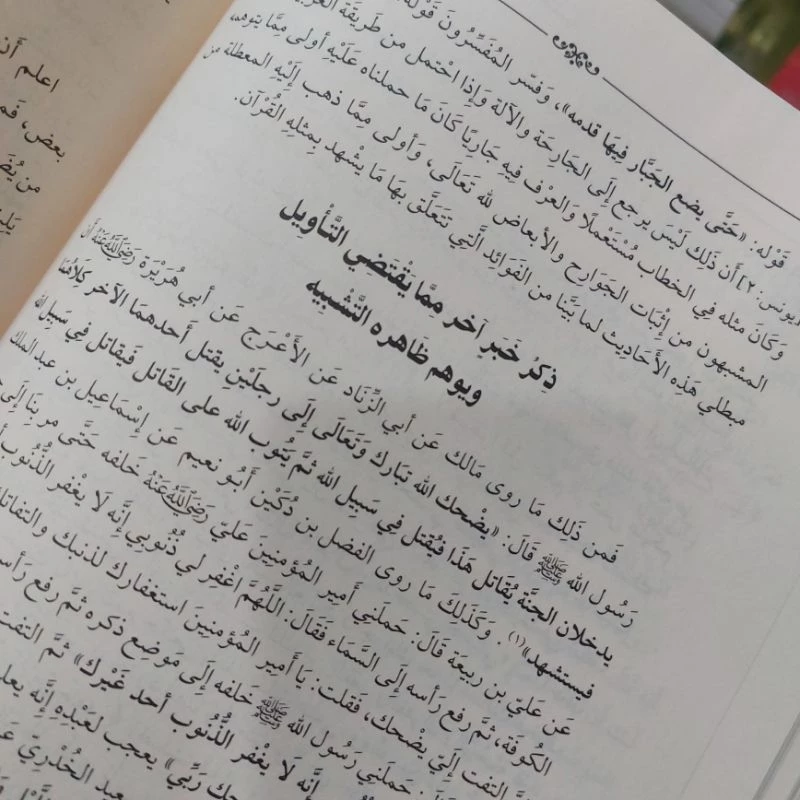 قَوْله: «حَتَّى يضع الجَبَّار فِيهَا قدمه»، وَفسّر المُفَسِّرُونَ قَوْله
[يونس: ٢] أَن ذَلِك لَيْسَ يرجع إِلَى الجَارِحَة والآلة وَإِذا احْتمل من طَريقَة
وَكَانَ مثله فِي الخطاب مُسْتَعْملًا وَالعرْف فِيهِ جَارِيًا كَانَ مَا حملناه عَلَيْهِ أولى مِمَّا يتوهمه
المشبهون من إِثْبَات الجَوَارِح والأبعاض لله تَعَالَى، وَأولى مِمَّا ذهب إِلَيْهِ المعطلة من
مبطلي هَذِه الأَحَادِيث لما بَيَّنا من الفَوَائِد الَّتِي تتَعَلَّق بهَا مَا يشْهد بِمثلِهِ القُرْآن.
ذِكرُ خَبَرٍ آخر مِمَّا يَقْتَضي التَّأوِيل
ويوهم ظَاهره التَّشْبِيه
فَمن ذَلِك مَا روى مَالك عَن أبي الزِّنَاد عَن الأَعْرَج عَن أبي هُرَيْرَة رَضِيَ اللَّهُ عَنْهُ أَن
رَسُول الله ﷺ قَالَ: «يضْحك الله تبَارك وَتَعَالَى إِلَى رجلَيْنِ يقتل أَحدهمَا الآخر كِلَاهُمَا
يدخلان الجنَّة يُقَاتل هَذَا فَيُقتل فِي سَبِيل الله ثمَّ يَتُوب الله على القَاتل فَيقاتل فِي سَبِيل الله
فيستشهد»(١). وَكَذَلِكَ مَا روى الفضل بن دُكَيْن أَبُو نعيم عَن إِسْمَاعِيل بن عبد الملك
عَن عَليّ بن ربيعَة قَالَ: حَملَني أَمِير المُؤمنِينَ عَليّ رَضِيَ اللَّهُ عَنْهُ خَلفه حَتَّى مر بِنَا إِلَى
الكُوفَة، ثمَّ رفع رَأسه إِلَى السَّمَاء فَقَالَ: اللَّهُمَّ اغْفِر لي ذُنُوبِي إِنَّه لَا يغْفر الذُّنُوب
التفت إِلَيّ يضْحك، فَقلت: يَا أَمِير المُؤمنِينَ استغفارك لذنبك والتفاتك
حَملَني رَسُول الله ﷺ خَلفه إِلَى مَوضِع ذكره ثمَّ رفع رَأسه
إِنَّه لَا يغْفر الذُّنُوب أحد غَيْرك» ثمَّ التفت
رَبِّي» يعجب لعَبْدِهِ إِنَّه
الخُدْرِيّ
اعلم أَن
بعض، فَم
من